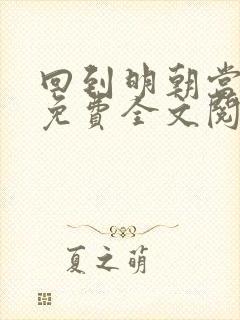 回到明朝当
免費全文閱
夏之萌